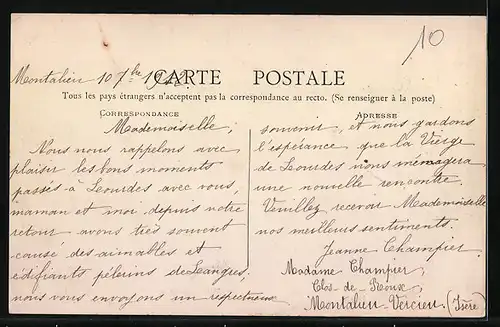 10
Montalieu 10 7bre 1922
CARTE POSTALE
Tous les pays étrangers n'acceptent pas la correspondance au recto. (Se renseigner à la poste)
CORRESPONDANCE
ADRESSE
Mademoiselle,
Nous nous rappelons avec
plaisir les bons moments
passés à Lourdes avec vous,
maman et moi depuis notre
retour avons très souvent
causé des aimables et
édifiants pèlerins de Langres,
nous vous envoyons un respectueux
souvenir, et nous gardons
l'espérance que la Vierge
de Lourdes nous ménagera
une nouvelle rencontre.
Veuillez recevoir Mademoiselle
nos meilleurs sentiments.
Jeanne Champier
Madame Champier,
Clos-de-
Montalieu-Vercieu. (Isère)